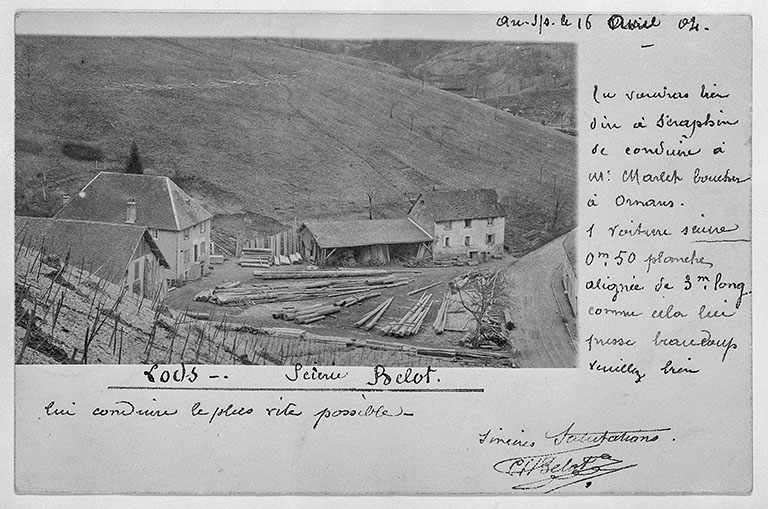 le 16 Avril 04.
Tu voudras bien
dire à Séraphin
de conduire à
Mr. Marlet boucher
à Ornans.
1 voiture sciure
0m,50 planche
alignée de 3m long.
comme cela lui
presse beaucoup
veuillez bien
LODS -. Scierie Belot.
lui conduire le plus vite possible -
Sincères Salutations.
Belot